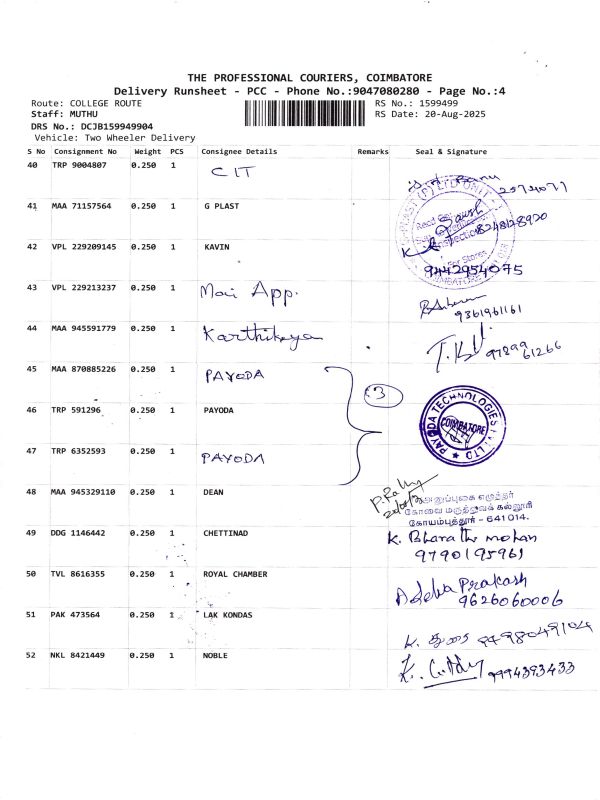 THE PROFESSIONAL COURIERS, COIMBATORE
Delivery Runsheet - PCC - Phone No.:9047080280 - Page No.:4
Route: COLLEGE ROUTE RS No.: 1599499
Staff: MUTHU RS Date: 20-Aug-2025
DRS No.: DCJB159949904
Vehicle: Two Wheeler Delivery
S No Consignment No Weight PCS Consignee Details Remarks Seal & Signature
40 TRP 9004807 0.250 1 CIT
41 MAA 71157564 0.250 1 G PLAST 8248128920
42 VPL 229209145 0.250 1 KAVIN 9442954075
For Stores
43 VPL 229213237 0.250 1 Mai App. 9361961161
44 MAA 945591779 0.250 1 Karthikeya 97899 61266
45 MAA 870885226 0.250 1 PAYODA 3
46 TRP 591296 0.250 1 PAYODA PAYODA TECHNOLOGIES PVT. LTD COIMBATORE
47 TRP 6352593 0.250 1 PAYODA
48 MAA 945329110 0.250 1 DEAN
அனுப்புகை எழுத்தர்
கோவை மருத்துவக் கல்லூரி
கோயம்புத்தூர் - 641 014.
49 DDG 1146442 0.250 1 CHETTINAD K. Bharathi mohan
9790195961
50 TVL 8616355 0.250 1 ROYAL CHAMBER Prakash
9626060006
51 PAK 473564 0.250 1 LAK KONDAS K. துரை 9498049104
52 NKL 8421449 0.250 1 NOBLE 9994393433